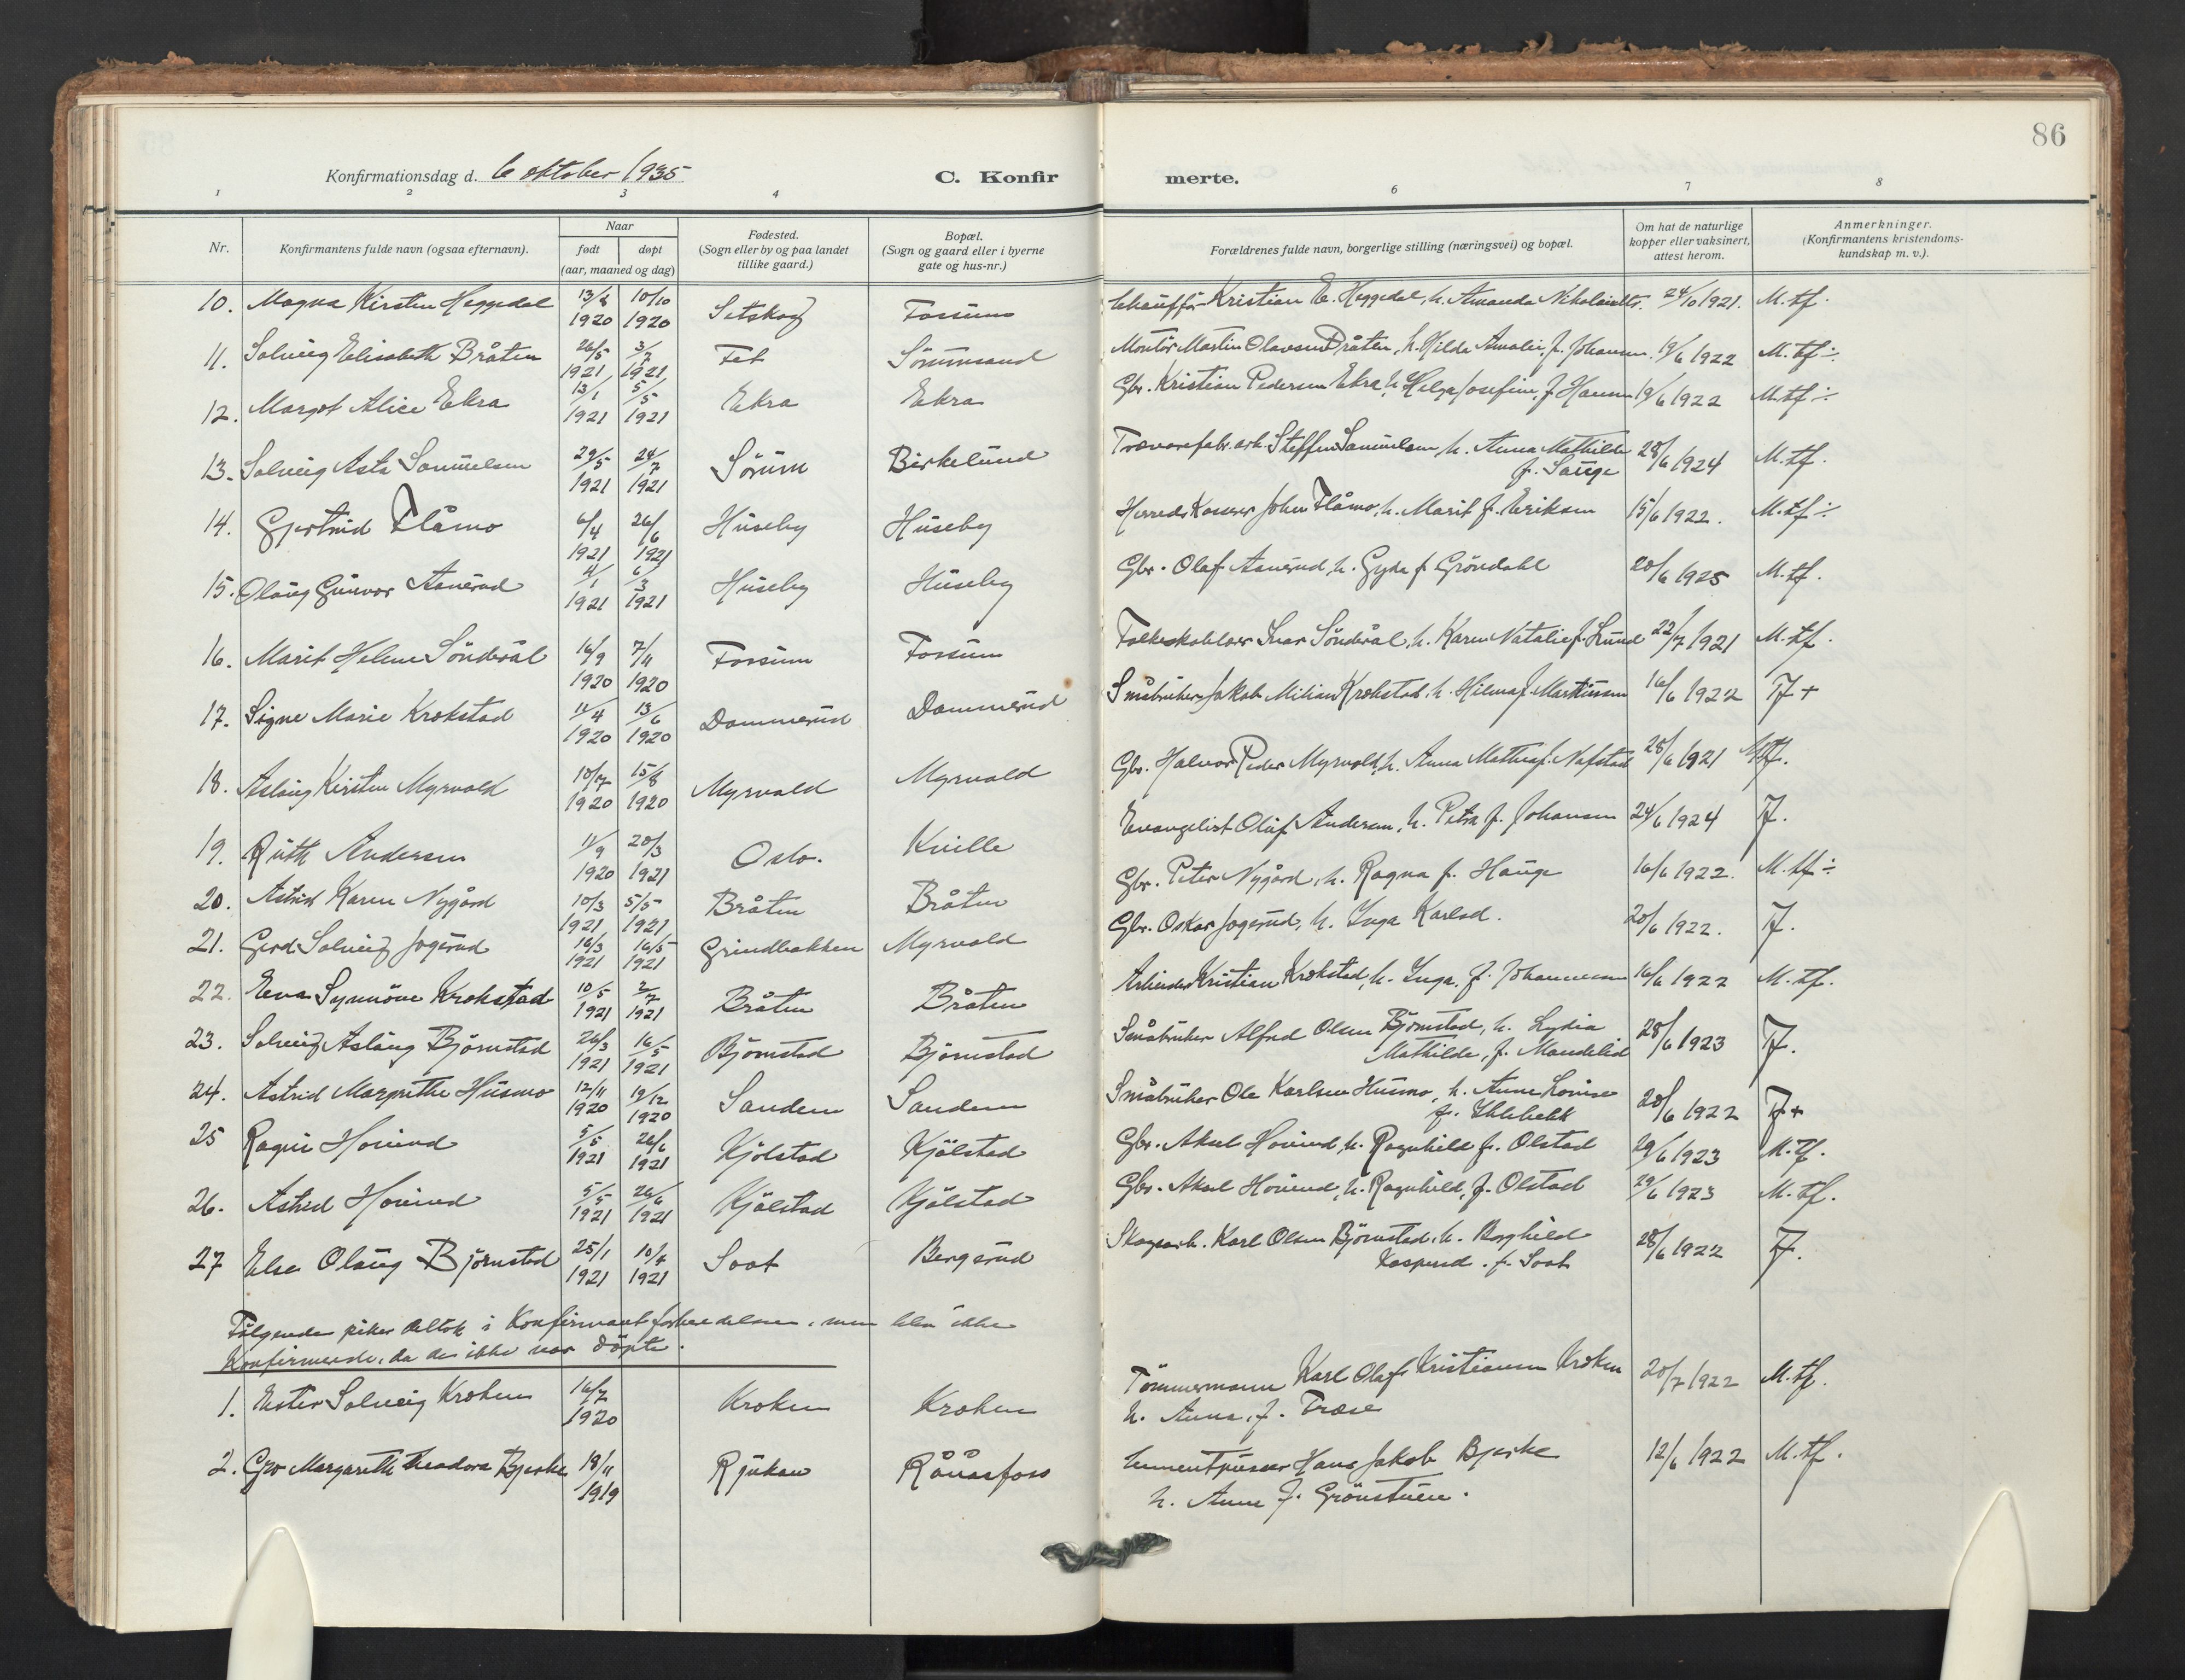 86
Konfirmationsdag d. 6 oktober 1935
C. Konfir merte.
1 2 3 4 6 7 8
Nr.
Konfirmantens fulde navn (ogsaa efternavn).
Naar
født døpt
(aar, maaned og dag)
Fødested.
(Sogn eller by og paa landet
tillike gaard.)
Bopæl.
(Sogn og gaard eller i byerne
gate og hus-nr.)
Forældrenes fulde navn, borgerlige stilling (næringsvei) og bopæl.
Om hat de naturlige
kopper eller vaksinert,
attest herom.
Anmerkninger.
(Konfirmantens kristendoms-
kundskap m. v.).
10. Magna Kirsten Heggedal 13/8 1920 10/10 1920 Setskog Fossum Chauffør Kristian E. Heggedal, h. Amanda 24/10 1921. M. tf.
11. Solveig Elisabeth Bråten 26/5 1921 3/7 1921 Fet Sørumsand Montør Martin Olavsen Bråten, h. Hilda Amalie, f. Johansen 19/6 1922 M. tf ÷
12. Margot Alice Ekra 13/1 1921 5/5 1921 Ekra Ekra Gbr. Kristian Pedersen Ekra, h. Helga Josefine, f. Hansen 19/6 1922 M. tf ÷
13. Solveig Asta Samuelsen 29/5 1921 24/7 1921 Sørum Birkelund Trævarefabr. arb. Steffen Samuelsen, h. Anna Mathilde
f. Sauge 28/6 1924 M. tf.
14. Gjertrud Flåmo 6/4 1921 26/6 1921 Huseby Huseby Herredskasserer John Flåmo, h. Marit f. Eriksen 15/6 1922. M. tf ÷
15. Olaug Gunvor Aanerud 4/1 1921 6/3 1921 Huseby Huseby Gbr. Olaf Aanerud, h. Gyda f. Grøndahl 20/6 1925 M. tf.
16. Marit Helene Sønderål 16/9 1920 7/11 1920 Fossum Fossum Folkeskolelærer Ivar Sønderål, h. Karen Natalie f. Lund 22/7 1921 M. tf.
17. Signe Marie Krokstad 11/4 1920 13/6 1920 Dammerud Dammerud Småbruker Jakob Milian Krokstad, h. Hilma f. Martinsen 16/6 1922 Tf +
18. Aslaug Kirsten Myrvold 10/7 1920 15/8 1920 Myrvold Myrvold Gbr. Halvor Peder Myrvold, h. Anna Mathea f. Nafstad 28/6 1921 M. tf.
19. Ruth Andersen 11/9 1920 20/3 1921 Oslo. Kville Evangelist Oluf Andersen, h. Petra f. Johansen 24/6 1924 Tf.
20. Astrid Karen Nygård 10/3 1921 5/5 1921 Bråten Bråten Gbr. Peter Nygård, h. Ragna f. Hauge 16/6 1922. M. tf ÷
21. Gerd Solveig Jogerud 16/3 1921 16/5 1921 Grindbakken Myrvold Gbr. Oskar Jogerud, h. Inga Karlsd. 20/6 1922. Tf.
22. Eva Synnøve Krokstad 10/5 1921 2/7 1921 Bråten Bråten Arbeider Kristian Krokstad, h. Inga f. Johannesen 16/6 1922 M. tf.
23. Solveig Aslaug Bjørnstad 26/3 1921 16/5 1921 Bjørnstad Bjørnstad Småbruker Alfred Olsen Bjørnstad, h. Lydia
Mathilde, f. Mandelid 28/6 1923 Tf.
24. Astrid Margrethe Husmo 12/11 1920 19/12 1920 Sandem Sandem Småbruker Ole Karlsen Husmo, h. Anne Lovise
f. 20/6 1922 Tf +
25 Ragni Hovind 5/5 1921 26/6 1921 Kjølstad Kjølstad Gbr. Aksel Hovind, h. Ragnhild f. Olstad 29/6 1923 M. tf.
26. Astrid Hovind 5/5 1921 26/6 1921 Kjølstad Kjølstad Gbr. Aksel Hovind, h. Ragnhild, f. Olstad 29/6 1923 M. tf.
27 Else Olaug Bjørnstad 25/1 1921 10/4 1921 Soot Bergerud Skogsarb. Karl Olsen Bjørnstad, h. Borghild
f. Soot 28/6 1922 Tf.
Følgende piker deltok i Konfirmantforberedelsen, men blev ikke
Konfirmerde, da de ikke var døpte.
1. Ester Solveig Kroken 16/7 1920 Kroken Kroken Tømmermann Karl Olaf Kristiansen Kroken
h. Anna, f. Fræse 20/7 1922 M. tf.
2. Gro Margareth Theodora Bjerke 18/11 1919 Rjukan Rånåsfoss Cementpusser Hans Jakob Bjerke
h. Anne f. Grønstuen. 12/6 1922 M. tf.